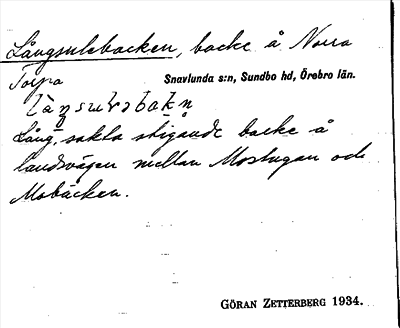 Långsulebacken, backe å Norra
Torpa Snavlunda s:n, Sundbo hd, Örebro län.
Lång, sakta stigande backe å
landsvägen mellan Mostugan och
Mobäcken.
GÖRAN ZETTERBERG 1934.